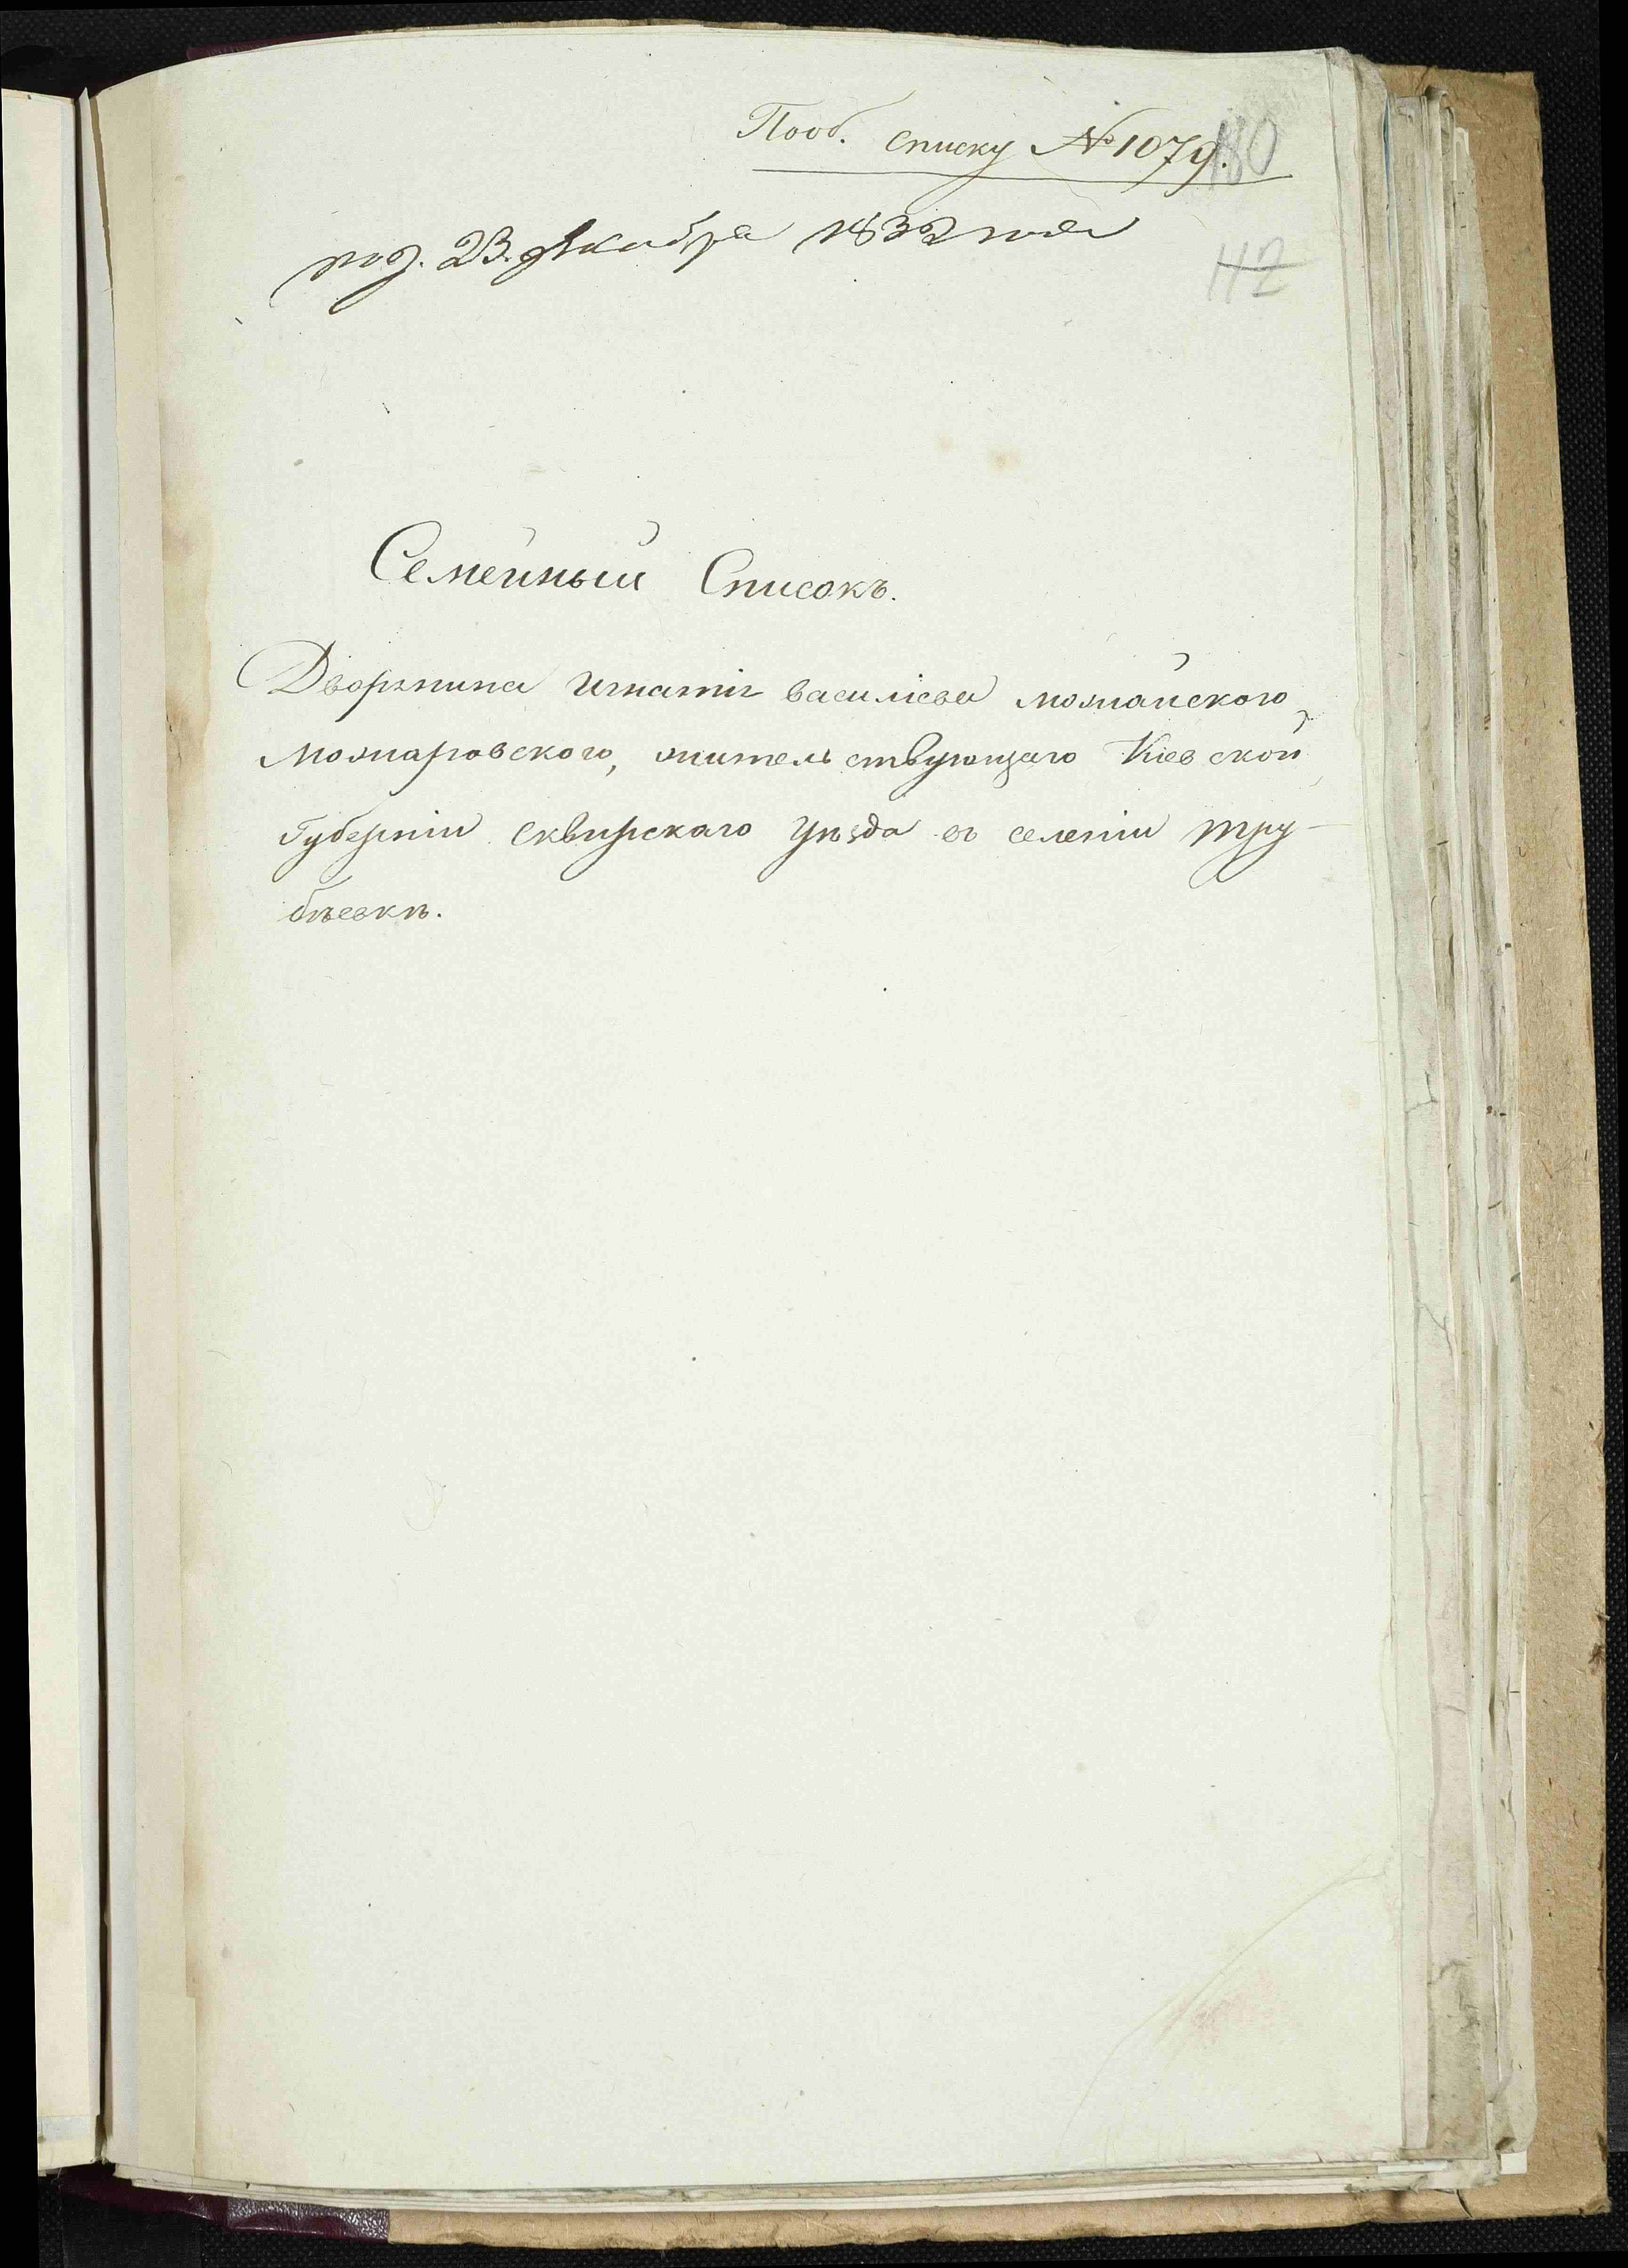 Пооб. списку № 1079.
180
под. 23. декабря 1832 года
112
Семейный Списокъ.
Дворянина Игнатія василіева можайского
Можаровского, жительствующаго Кіевской
Губерніи сквирскаго уѣзда въ селеніи тру-
бѣевкѣ.